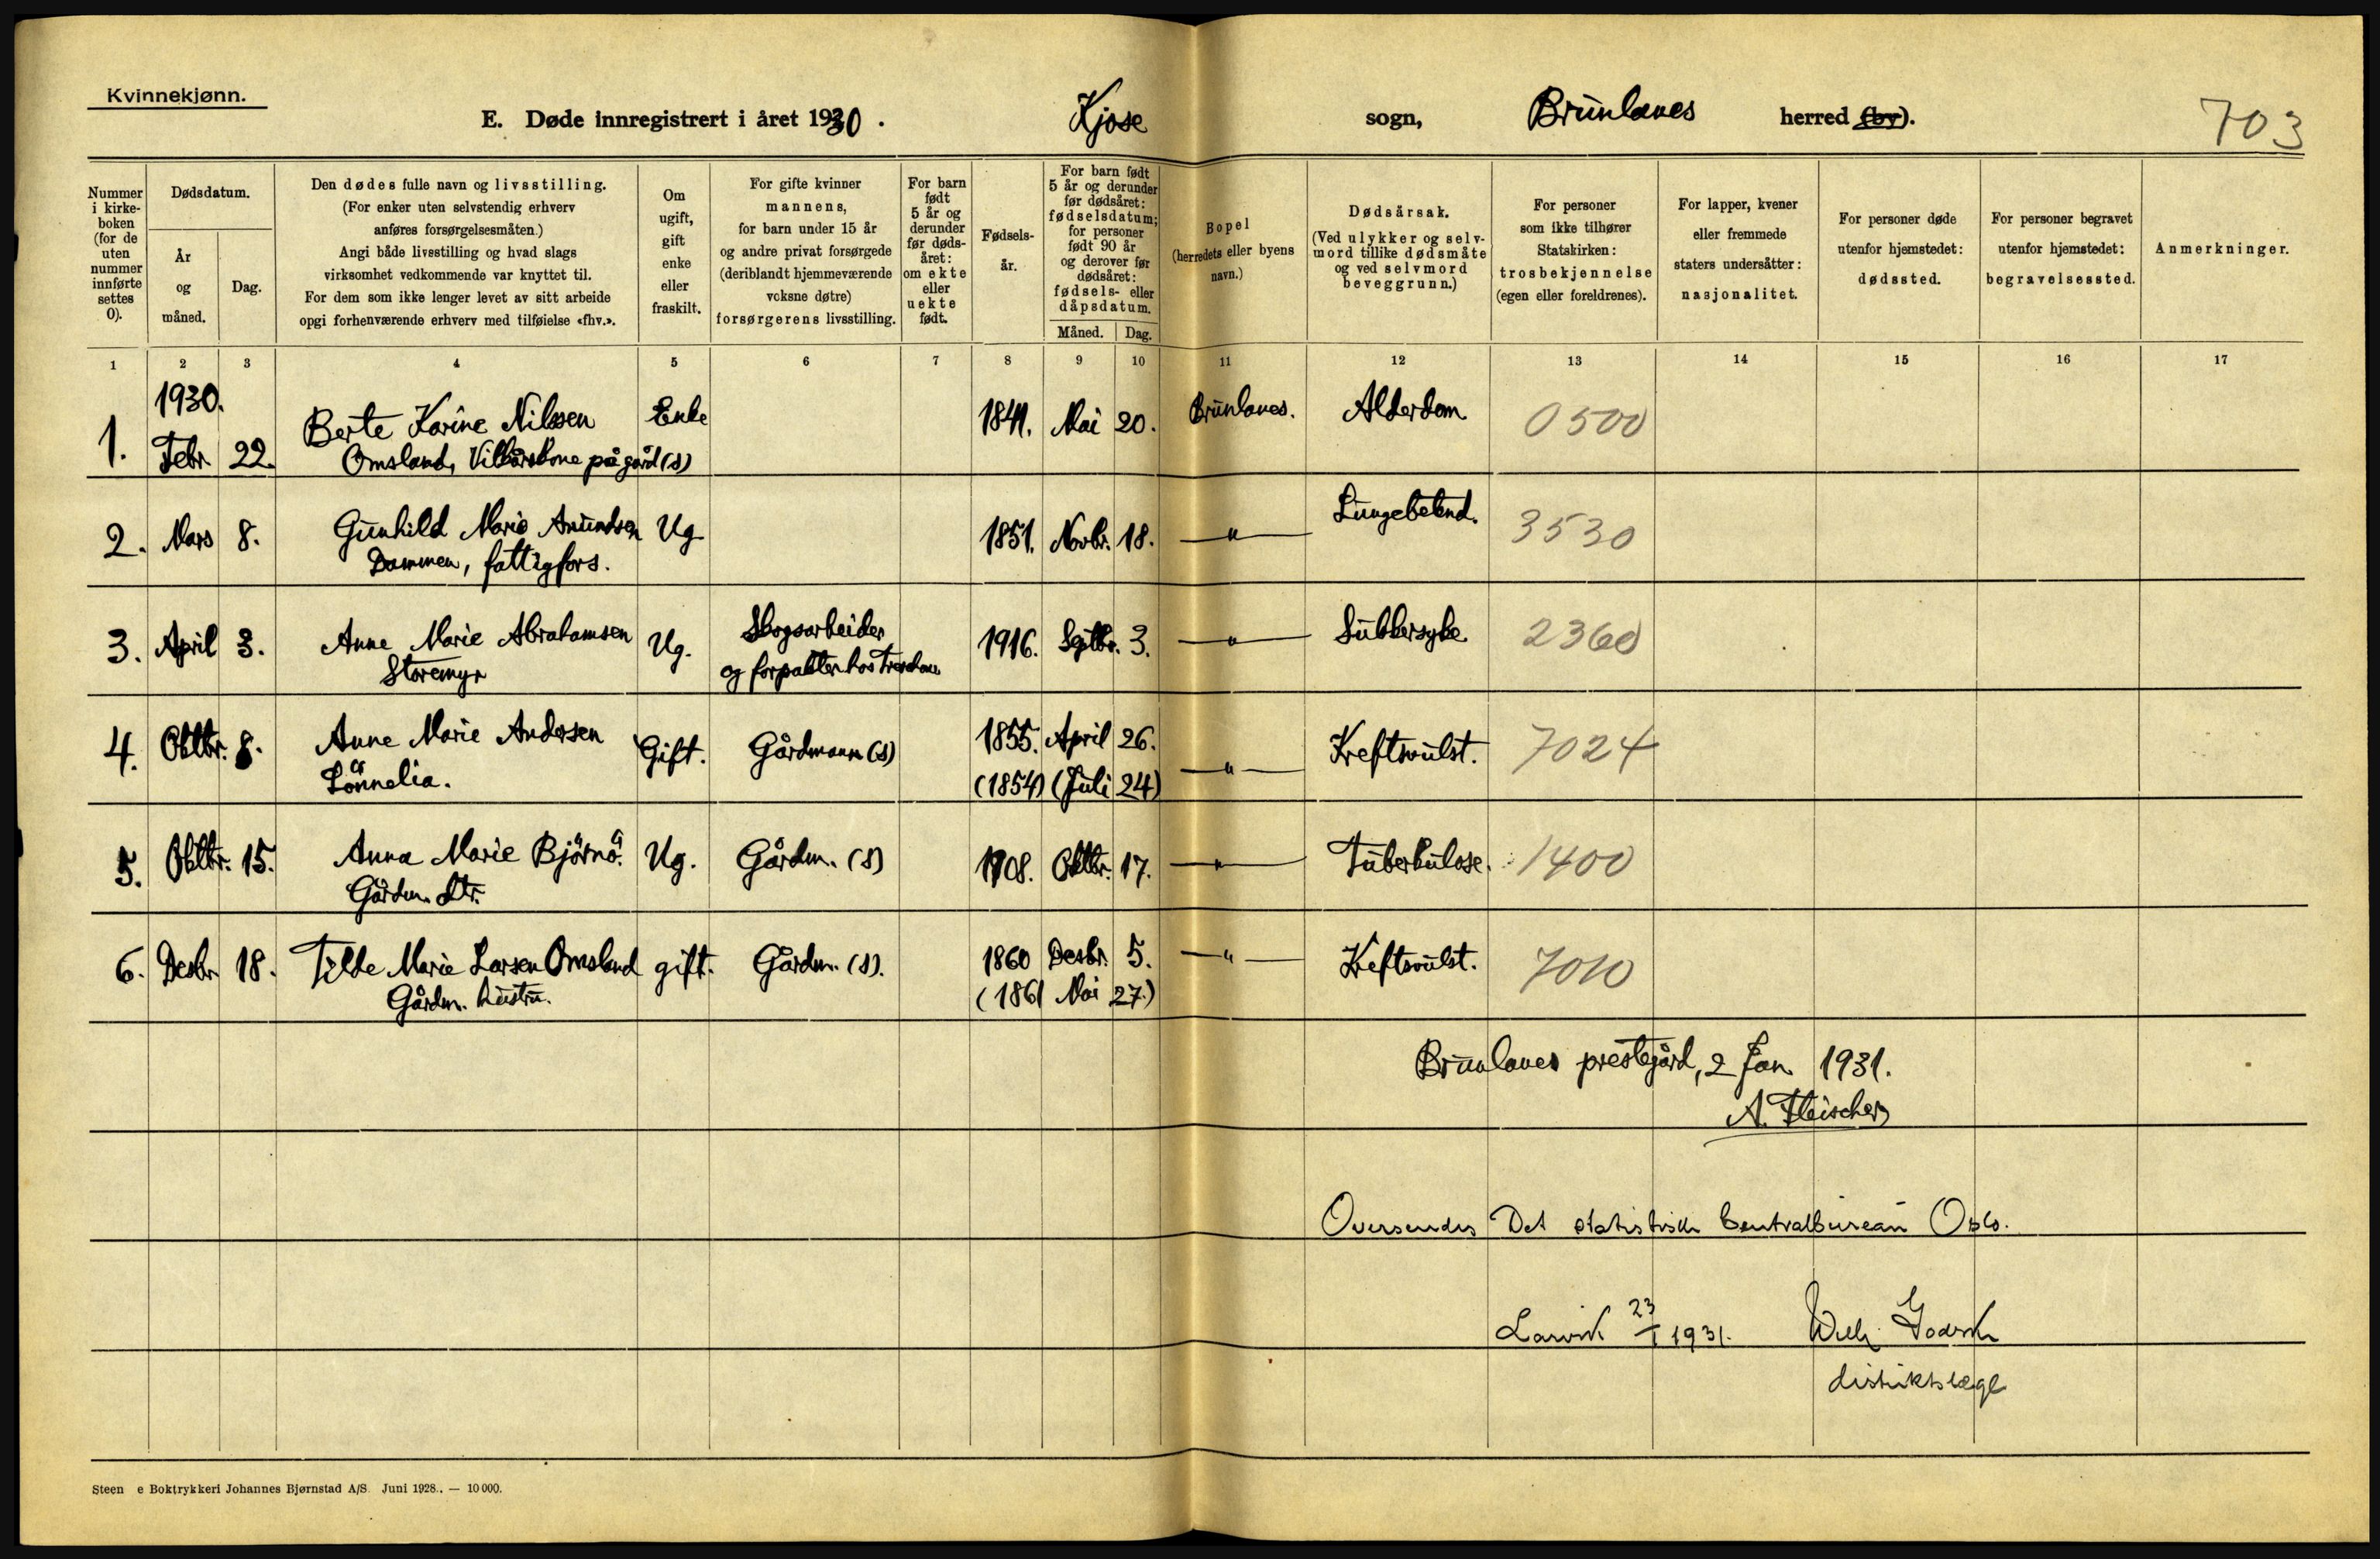 Kvinnekjønn.
E. Døde innregistrert i året 1930.
Kjose sogn, Brunlanes herred (by).
703
Nummer i kirke-boken (for de uten nummer innførte settes 0).
Dødsdatum.
År og måned.
Dag.
Den dødes fulle navn og livsstilling.
(For enker uten selvstendig erhverv
anføres forsørgelsesmåten.)
Angi både livsstilling og hvad slags
virksomhet vedkommende var knyttet til.
For dem som ikke lenger levet av sitt arbeide
opgi forhenværende erhverv med tilføielse «fhv.».
Om ugift, gift enke eller fraskilt.
For gifte kvinner
mannens,
for barn under 15 år
og andre privat forsørgede
(deriblandt hjemmeværende
voksne døtre)
forsørgerens livsstilling.
For barn født 5 år og derunder før døds-året: om ekte eller uekte født.
Fødsels-år.
For barn født
5 år og derunder
før dødsåret:
fødselsdatum;
for personer
født 90 år
og derover før
dødsåret:
fødsels- eller
dåpsdatum.
Måned. Dag.
Bopel
(herredets eller byens
navn.)
Dødsårsak.
(Ved ulykker og selv-
mord tillike dødsmåte
og ved selvmord
beveggrunn.)
For personer
som ikke tilhører
Statskirken:
trosbekjennelse
(egen eller foreldrenes).
For lapper, kvener
eller fremmede
staters undersåtter:
nasjonalitet.
For personer døde
utenfor hjemstedet:
dødssted.
For personer begravet
utenfor hjemstedet:
begravelsessted.
Anmerkninger.
1 2 3 4 5 6 7 8 9 10 11 12 13 14 15 16 17
1930.
1. Febr. 22. Berte Karine Nilssen Enke 1841. Mai 20. Brunlanes. Alderdom 0500
Omsland, Vilkårskone på gård (s)
2. Mars 8. Gunhild Marie Amundsen Ug. 1851. Novbr. 18. —"— Lungebetend. 3530
Dammen, fattigfors.
3. April 3. Anne Marie Abrahamsen Ug. Skogsarbeider 1916. Septbr. 3. —"— Sukkersyke 2360
Storemyr og forpakter hos Treschow
4. Oktbr. 8. Anne Marie Andersen Gift. Gårdmann (s) 1855. April 26. —"— Kreftsvulst. 7024
Lönnelia. (1854) (Juli 24)
5. Oktbr. 15. Anna Marie Björnö. Ug. Gårdm. (s) 1908. Oktbr. 17. —"— Tuberkulose. 1400
Gårdm. dtr.
6. Desbr. 18. Tilde Marie Larsen Omsland gift. Gårdm. (s). 1860 Desbr. 5. —"— Kreftsvulst. 7010
Gårdm. hustru. (1861 Mai 27.)
Brunlanes prestegård, 2 Jan. 1931.
A. Fleischer
Oversendes Det statistiske Centralbureau Oslo.
Larvik 23/1 1931. Wilh.
distriktslæge
Steen e Boktrykkeri Johannes Bjørnstad A/S. Juni 1928.. — 10 000.